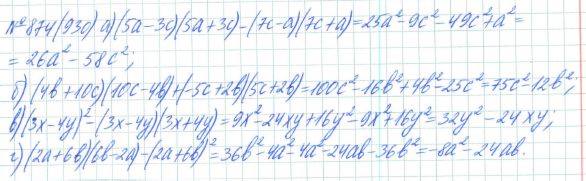 № 874 (930) а) (5a-3c)(5a+3c)-(7c-a)(7c+a)=25a²-9c²-49c²+a²=
=26a²-58c²;
б) (4b+10c)(10c-4b)+(-5c+2b)(5c+2b)=100c²-16b²+4b²-25c²=75c²-12b²;
в) (3x-4y)²-(3x-4y)(3x+4y)=9x²-24xy+16y²-9x²+16y²=32y²-24xy;
г) (2a+6b)(6b-2a)-(2a+6b)²=36b²-4a²-4a²-24ab-36b²=-8a²-24ab.